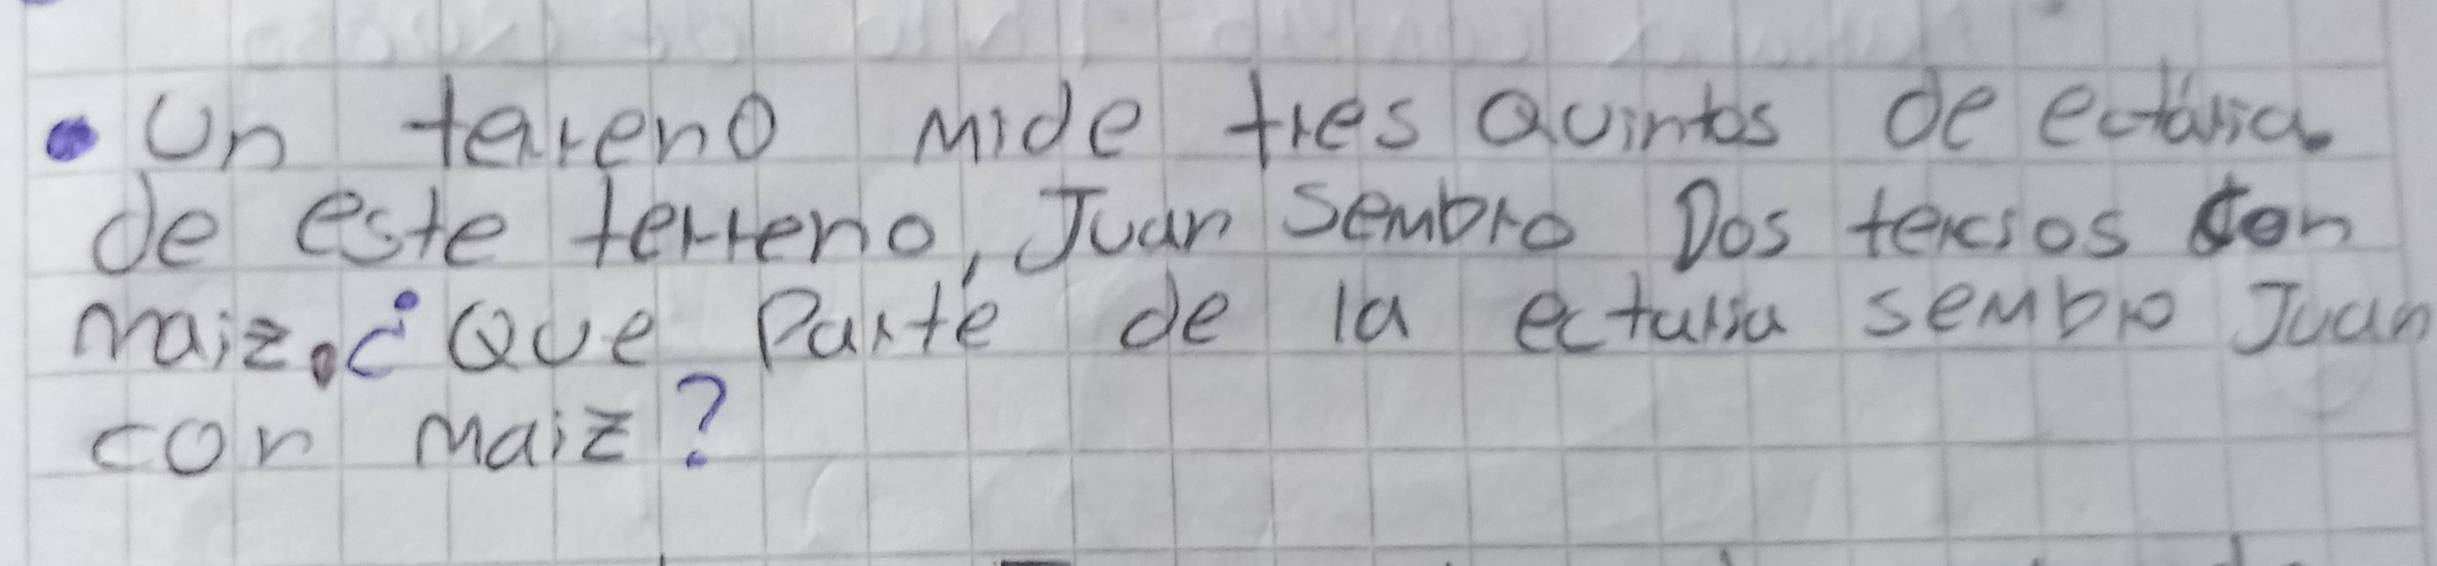 Un terreno mide tres Quintos de ectaria.
de este terreno, Juan sembro Dos tercsios con
maiz. ¿Que Parte de la ectaria sembro Juan
con maiz?